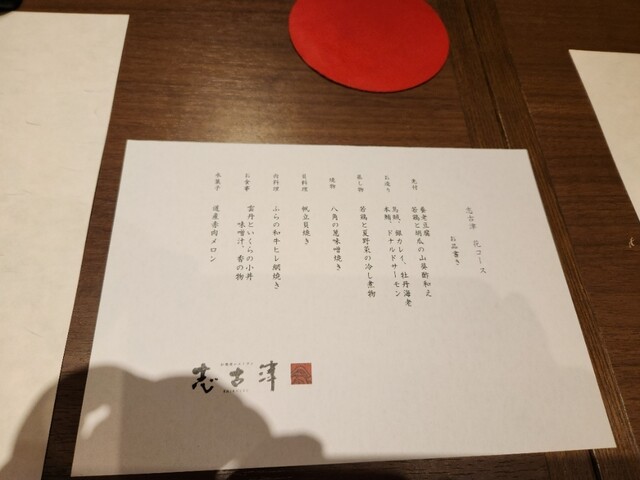 志古津 花コース
お品書き
先付
養老豆腐
若鶏と胡瓜の山葵酢和え
お造り
烏賊、銀カレイ、牡丹海老
本鮪、ドナルドサーモン
蒸し物
若鶏と夏野菜の冷し煮物
焼物
八角の葱味噌焼き
貝料理
帆立貝焼き
肉料理
ふらの和牛ヒレ網焼き
お食事
雲丹といくらの小丼
味噌汁、香の物
水菓子
道産赤肉メロン
志古津